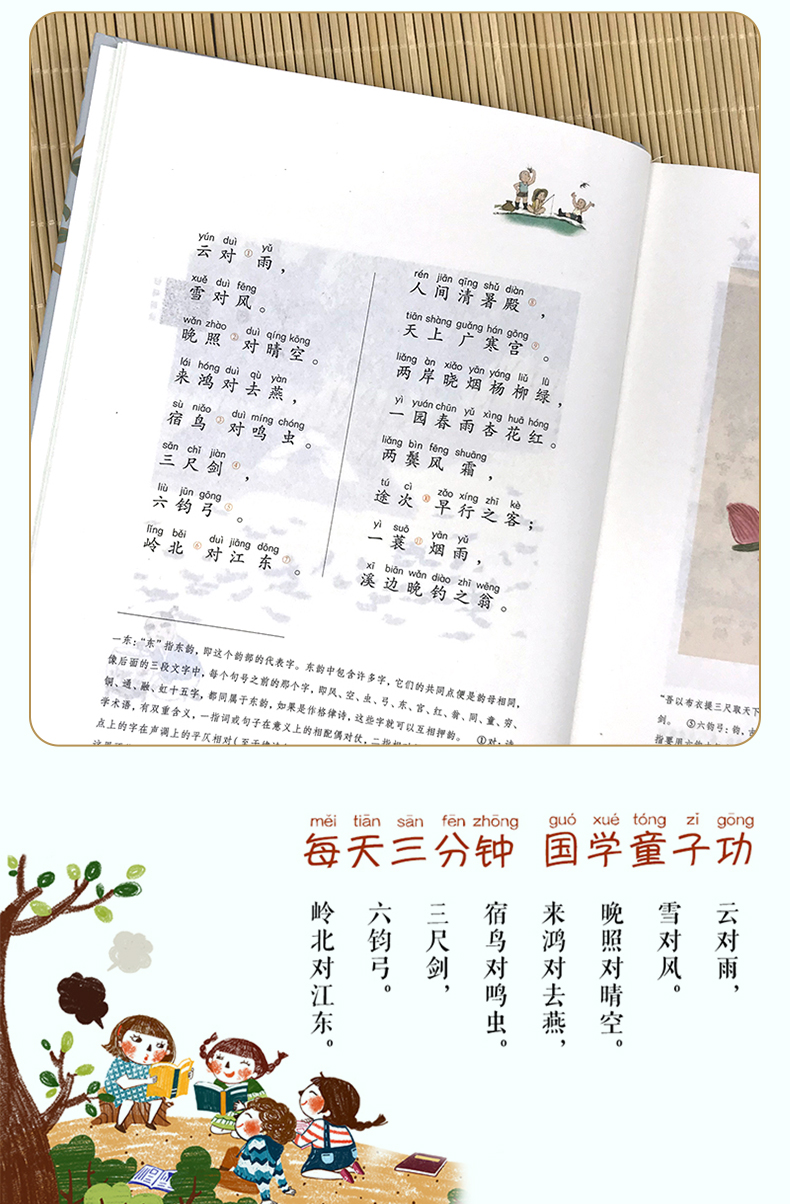 yún duì yǔ
云对①雨，
xuě duì fēng
雪对风。
wǎn zhào duì qíng kōng
晚照②对晴空。
lái hóng duì qù yàn
来鸿对去燕，
sù niǎo duì míng chóng
宿鸟③对鸣虫。
sān chǐ jiàn
三尺剑④，
liù jūn gōng
六钧弓⑤。
lǐng běi duì jiāng dōng
岭北⑥对江东⑦。
rén jiān qīng shǔ diàn
人间清暑殿⑧，
tiān shàng guǎng hán gōng
天上广寒宫⑨。
liǎng àn xiǎo yān yáng liǔ lǜ
两岸晓烟杨柳绿，
yì yuán chūn yǔ xìng huā hóng
一园春雨杏花红。
liǎng bìn fēng shuāng
两鬓风霜，
tú cì zǎo xíng zhī kè
途次⑩早行之客；
yì suō yān yǔ
一蓑⑪烟雨，
xī biān wǎn diào zhī wēng
溪边晚钓之翁。
一东：“东”指东韵，即这个韵部的代表字。东韵中包含许多字，它们的共同点便是韵母相同，
像后面的三段文字中，每个句号之前的那个字，即风、空、虫、弓、东、宫、红、翁、同、童、穷、
铜、通、融、虹十五字，都同属于东韵，如果是作格律诗，这些字就可以互相押韵。 ①对：
学术语，有双重含义，一指词或句子在意义上的相配偶对仗，
点上的字在声调上的平仄相对(
“吾以布衣提三尺取天下
剑。 ⑤六钧弓：钧，古
měi tiān sān fēn zhōng guó xué tóng zǐ gōng
每天三分钟 国学童子功
云对雨，
雪对风。
晚照对晴空。
来鸿对去燕，
宿鸟对鸣虫。
三尺剑，
六钧弓。
岭北对江东。